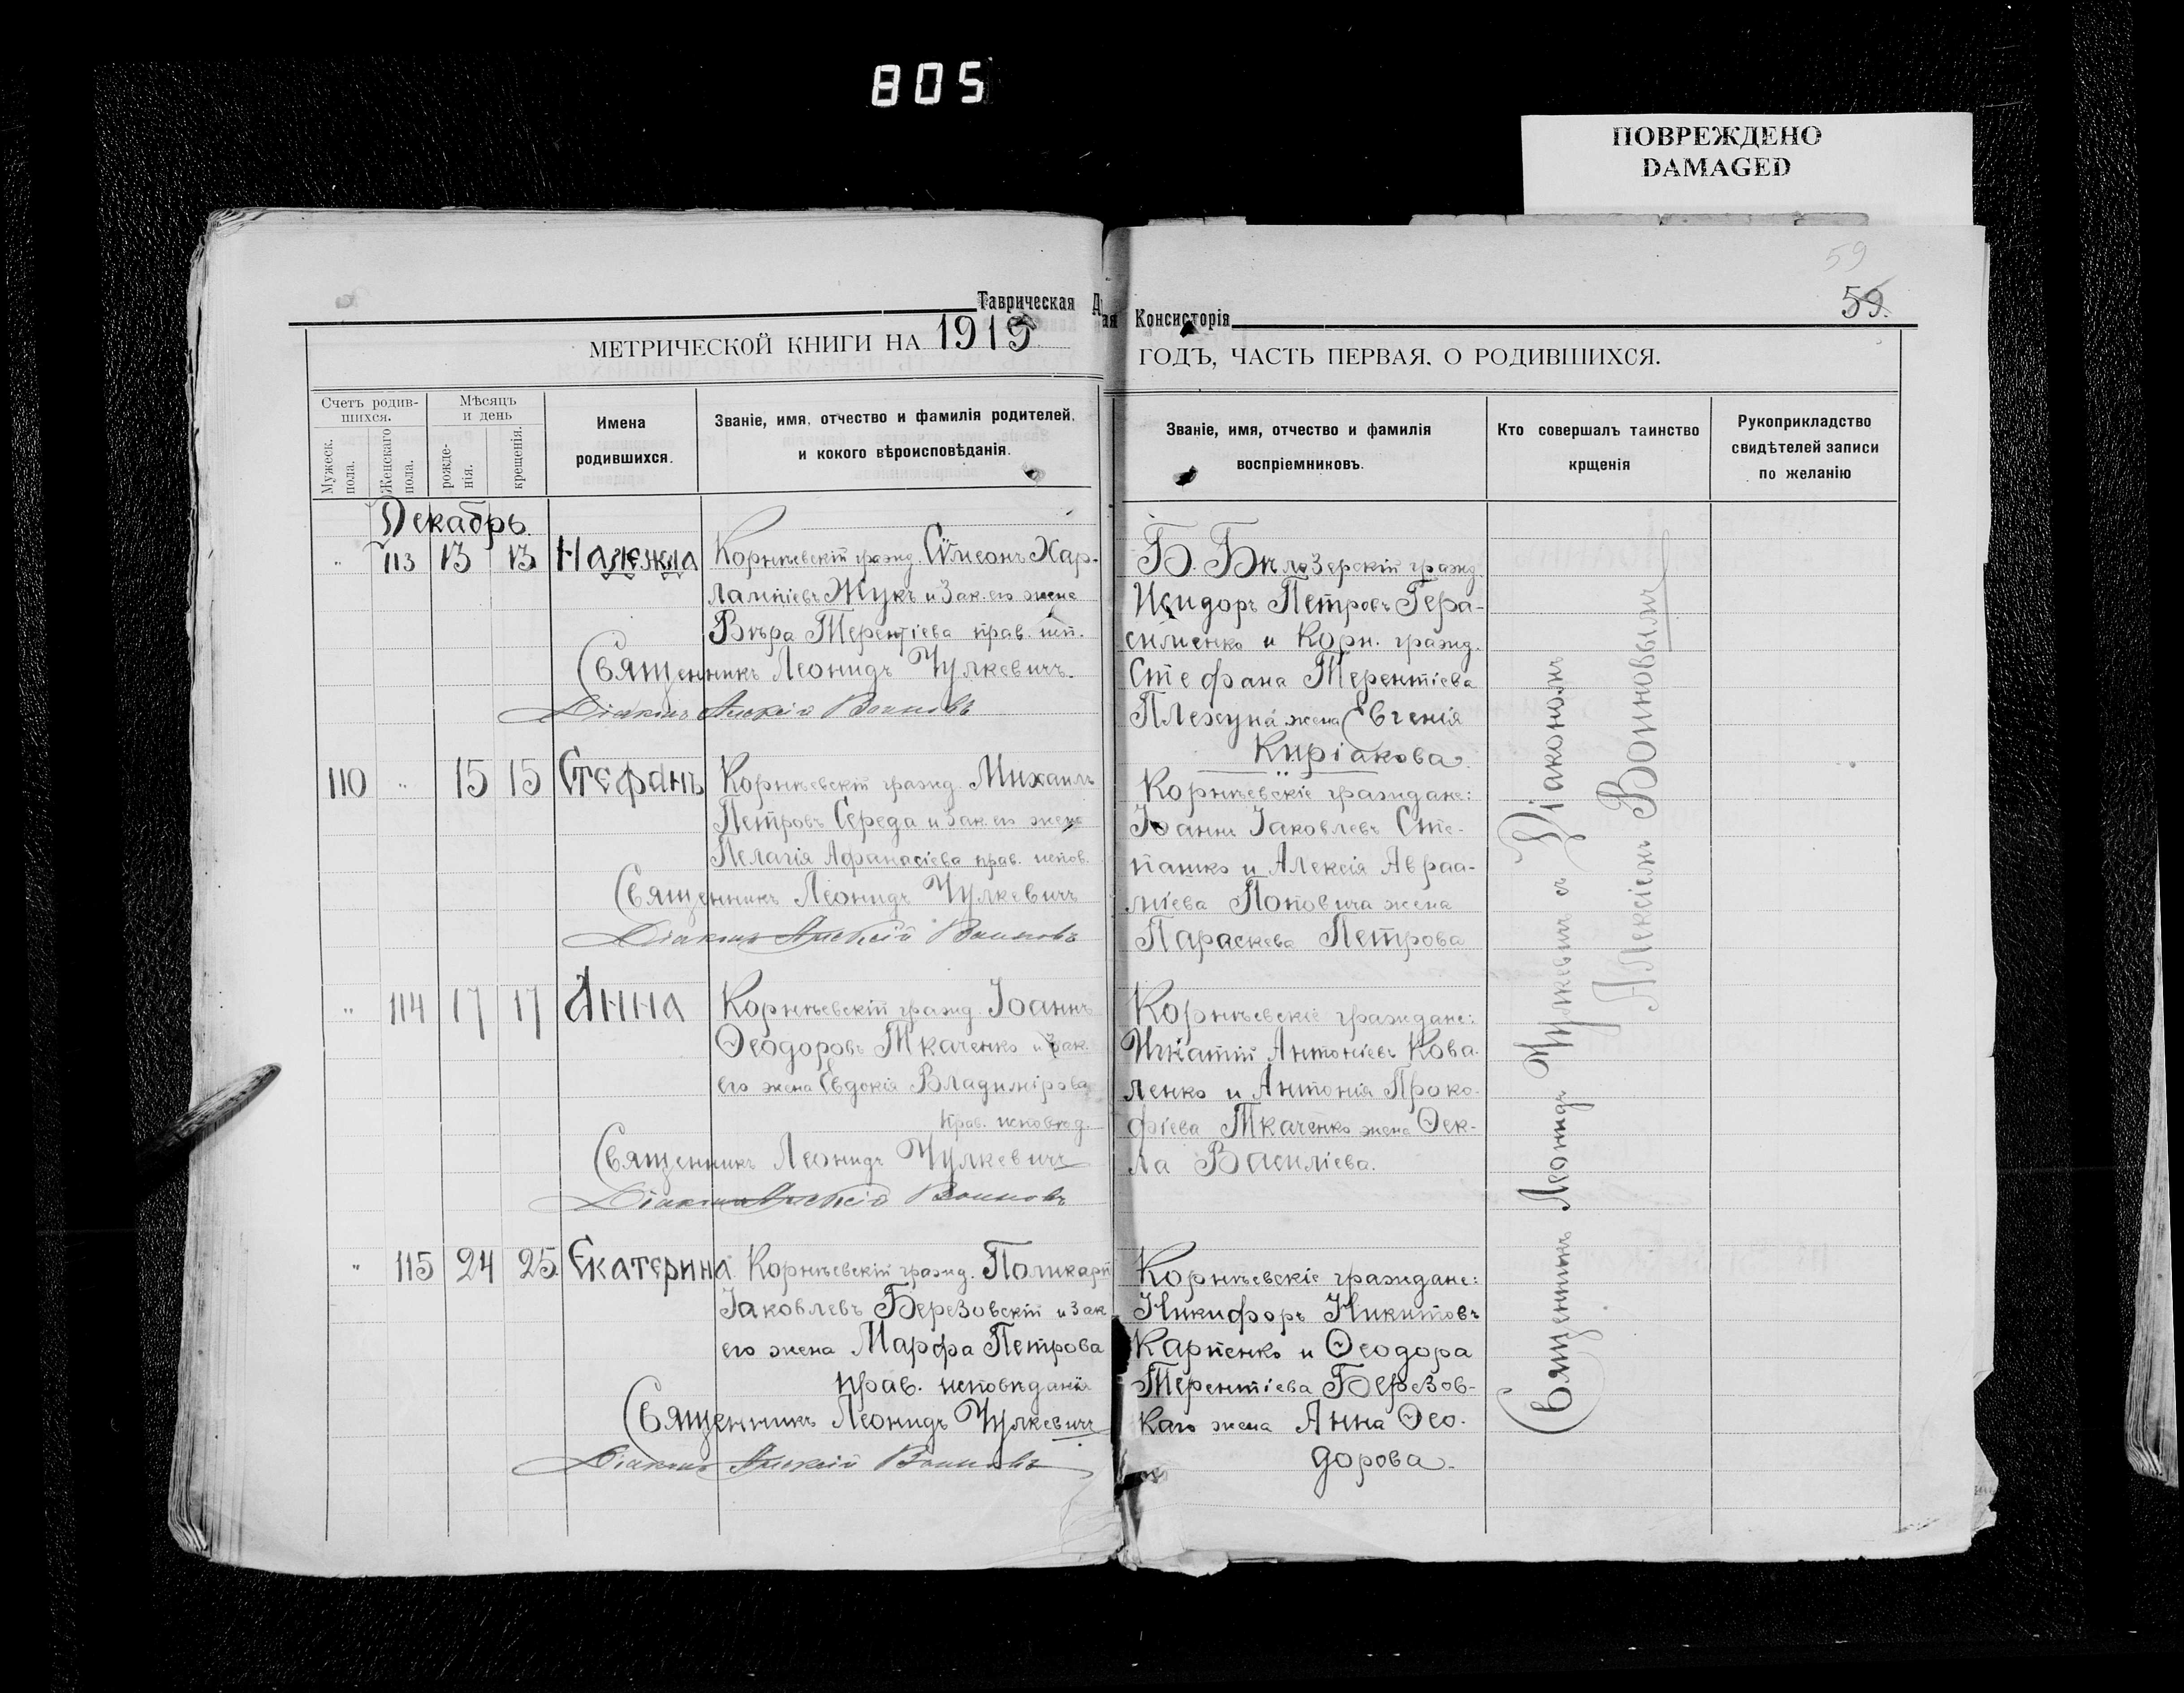 805
ПОВРЕЖДЕНО
DAMAGED
59
59.
Таврическая
Консисторія
МЕТРИЧЕСКОЙ КНИГИ НА 1919
ГОДЪ, ЧАСТЬ ПЕРВАЯ, О РОДИВШИХСЯ.
Счетъ родив-
шихся.
Мужеск. пола.
Женскаго пола.
Мѣсяцъ
и день
рожде-
нія.
крещенія.
Имена
родившихся.
Званіе, имя, отчество и фамилія родителей,
и кокого вѣроисповѣданія.
Званіе, имя, отчество и фамилія
воспріемниковъ.
Кто совершалъ таинство
крщенія
Рукоприкладство
свидѣтелей записи
по желанію
Декабрь
" 113 13 13 Надежда Корнѣевскій гражд. Сѵмеонъ Хар-
лампіевъ Жукъ и зак. его жена
Вѣра Терентіева прав. исп.
Священникъ Леонидъ Чулкевичъ.
Діаконъ Алексій Воиновъ
Б. Бѣлозерскій гражд.
Исидоръ Петровъ Гера-
сименко и Корн. гражд.
Стефана Терентіева
Плехуна жена Евгенія
Киріакова.
110 " 15 15 Стефанъ Корнѣевскій гражд. Михаилъ
Петровъ Середа и зак. его жена
Пелагія Афанасіева прав. испов.
Священникъ Леонидъ Чулкевичъ
Діаконъ Алексій Воиновъ
Корнѣевскіе граждане:
Іоаннъ Іаковлевъ Сте-
пашко и Алексія Авраа-
міева Поповича жена
Параскева Петрова
" 114 17 17 Анна Корнѣевскій гражд. Іоаннъ
Ѳеодоровъ Ткаченко и зак.
его жена Евдокія Владимірова
прав. исповѣд.
Священникъ Леонидъ Чулкевичъ
Діаконъ Алексій Воиновъ
Корнѣевскіе граждане:
Игнатій Антоніевъ Кова-
ленко и Антонія Проко-
фіева Ткаченко жена Ѳек-
ла Василіева.
" 115 24 25 Екатерина Корнѣевскій гражд. Поликарп
Іаковлевъ Березовскій и зак
его жена Марфа Петрова
прав. исповѣданія
Священникъ Леонидъ Чулкевичъ
Діаконъ Алексій Воиновъ
Корнѣевскіе граждане:
Никифоръ Никитовъ
Карпенко и Ѳеодора
Терентіева Березов-
каго жена Анна Ѳео-
дорова.
Священникъ Леонидъ Чулкевичъ съ Діакономъ
Алексіемъ Воиновымъ